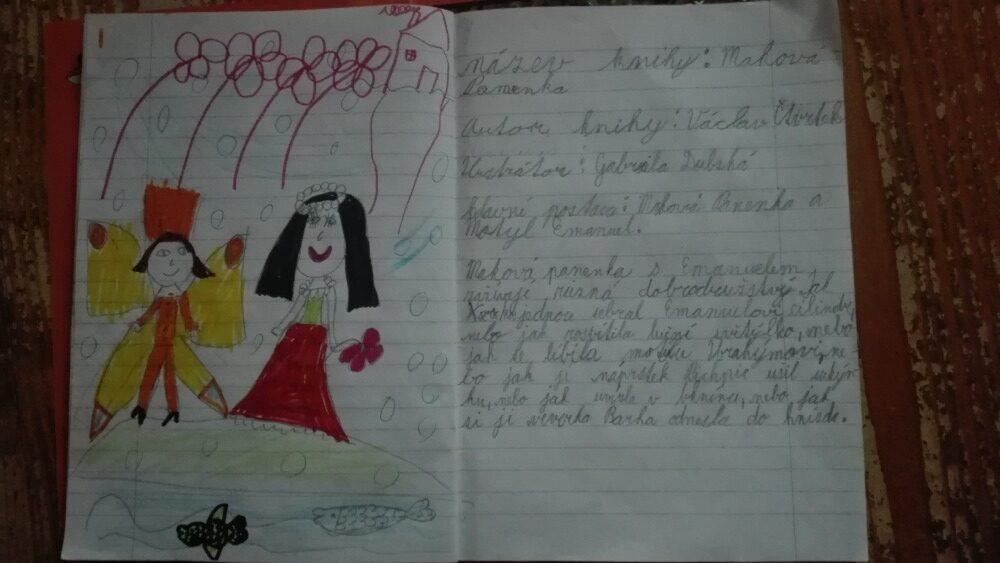 název knihy: Maková
Panenka
Autor knihy: Václav Čtvrtek
Ilustrátor: Gabriela Dubská
hlavní postava: Maková Panenka a
Motýl Emanuel.
Maková panenka s Emanuelem
různá dobrodružství jak
jednou sebral Emanuelovi cilindr,
nebo jak rozsvítila lučné světýlko, nebo
jak se líbila Vrahýmovi, ne-
bo jak ji naprstek ušil sukýn-
ku, nebo jak v, nebo jak
si ji veverka Barka odnesla do hnízda.